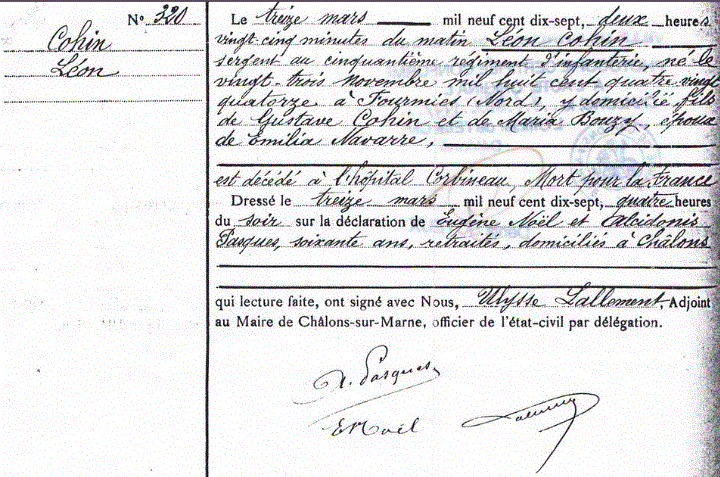 N° 320
Cohin
Léon
Le treize mars mil neuf cent dix-sept, deux heures
vingt-cinq minutes du matin Léon Cohin
sergent au cinquantième régiment d'infanterie, né le
vingt-trois novembre mil huit cent quatre vingt
quatorze à Fourmies (Nord), y domicilié fils
de Gustave Cohin et de Maria Bouzy, époux
de Emilia Navarre,
est décédé à l'hôpital Corbineau, Mort pour la France
Dressé le treize mars mil neuf cent dix-sept, quatre heures
du soir sur la déclaration de Eugène Noël et Alcidonis
Pasques, soixante ans, retraités, domiciliés à Châlons
qui lecture faite, ont signé avec Nous, Ulysse Lallement, Adjoint
au Maire de Châlons-sur-Marne, officier de l'état-civil par délégation.
A. Pasques
E Noël